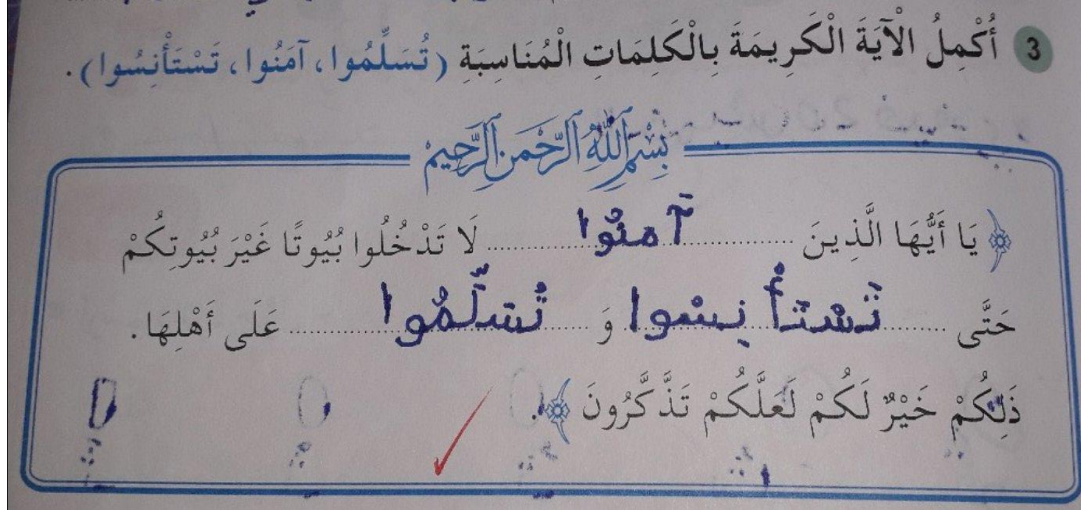 3 أُكْمِلُ الْآيَةَ الْكَرِيمَةَ بِالْكَلِمَاتِ الْمُنَاسِبَةِ (تُسَلِّمُوا، آمَنُوا، تَسْتَأْنِسُوا).
بِسْمِ اللَّهِ الرَّحْمَنِ الرَّحِيمِ
﴿ يَا أَيُّهَا الَّذِينَ آمنُوا لَا تَدْخُلُوا بُيُوتًا غَيْرَ بُيُوتِكُمْ
حَتَّى تَسْتأْنِسُوا وَ تُسَلِّمُوا عَلَى أَهْلِهَا.
ذَلِكُمْ خَيْرٌ لَكُمْ لَعَلَّكُمْ تَذَّكَّرُونَ ﴾.